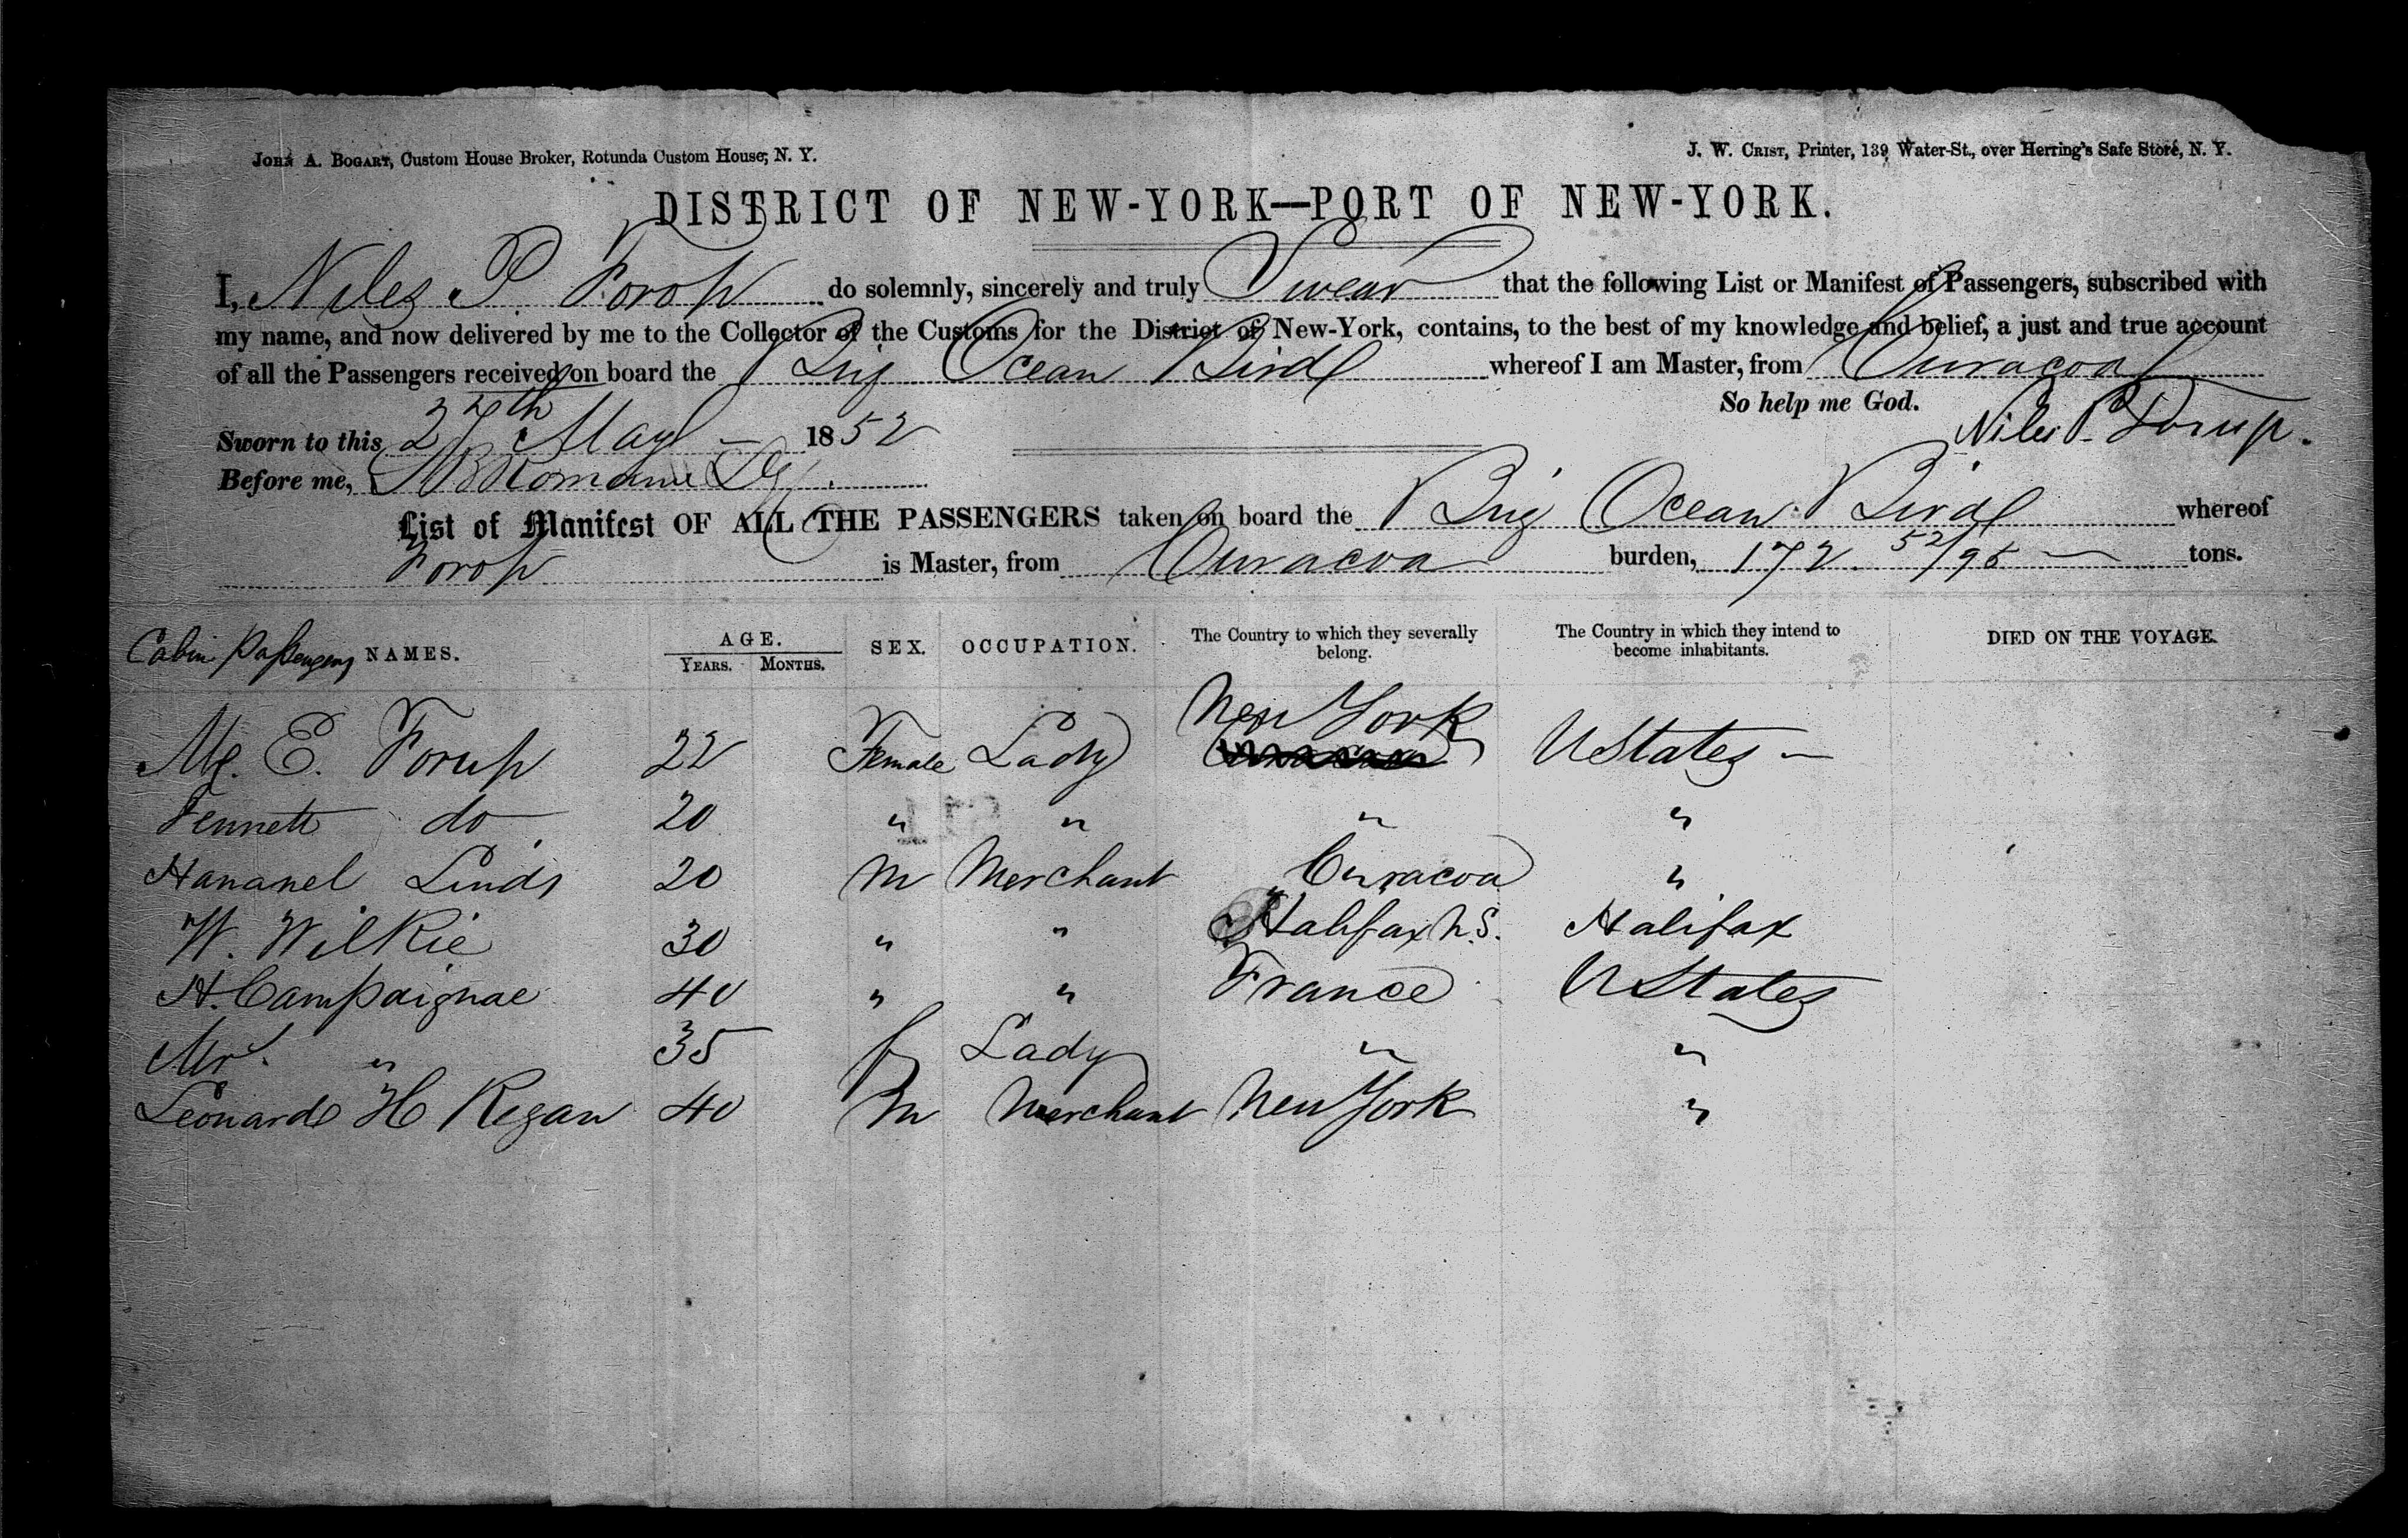 JOHN A. BOGART, Custom House Broker, Rotunda Custom House, N. Y. J. W. CRIST, Printer, 139 Water-St., over Herring's Safe Store, N. Y.
DISTRICT OF NEW-YORK—PORT OF NEW-YORK.
I, Niles P. Forop do solemnly, sincerely and truly Swear that the following List or Manifest of Passengers, subscribed with
my name, and now delivered by me to the Collector of the Customs for the District of New-York, contains, to the best of my knowledge and belief, a just and true account
of all the Passengers received on board the Brig Ocean Bird whereof I am Master, from Curacoa
So help me God.
Sworn to this 27th May 1852 Niles P. Forup.
Before me,
List of Manifest OF ALL THE PASSENGERS taken on board the Brig Ocean Bird whereof
Forop is Master, from Curacoa burden, 172 52/95 tons.
Cabin Passengers NAMES. AGE. YEARS. MONTHS. SEX. OCCUPATION. The Country to which they severally belong. The Country in which they intend to become inhabitants. DIED ON THE VOYAGE.
New York
E. Forup 22 Female Lady UStates —
Jennett do 20 " " " "
Hananel Linds 20 M Merchant Curacoa "
W. Wilkie 30 " " Halifax N.S. Halifax
H. Campaignac 40 " " France UStates
Mrs. " 35 f Lady " "
Leonard H Regan 40 M Merchant New York "